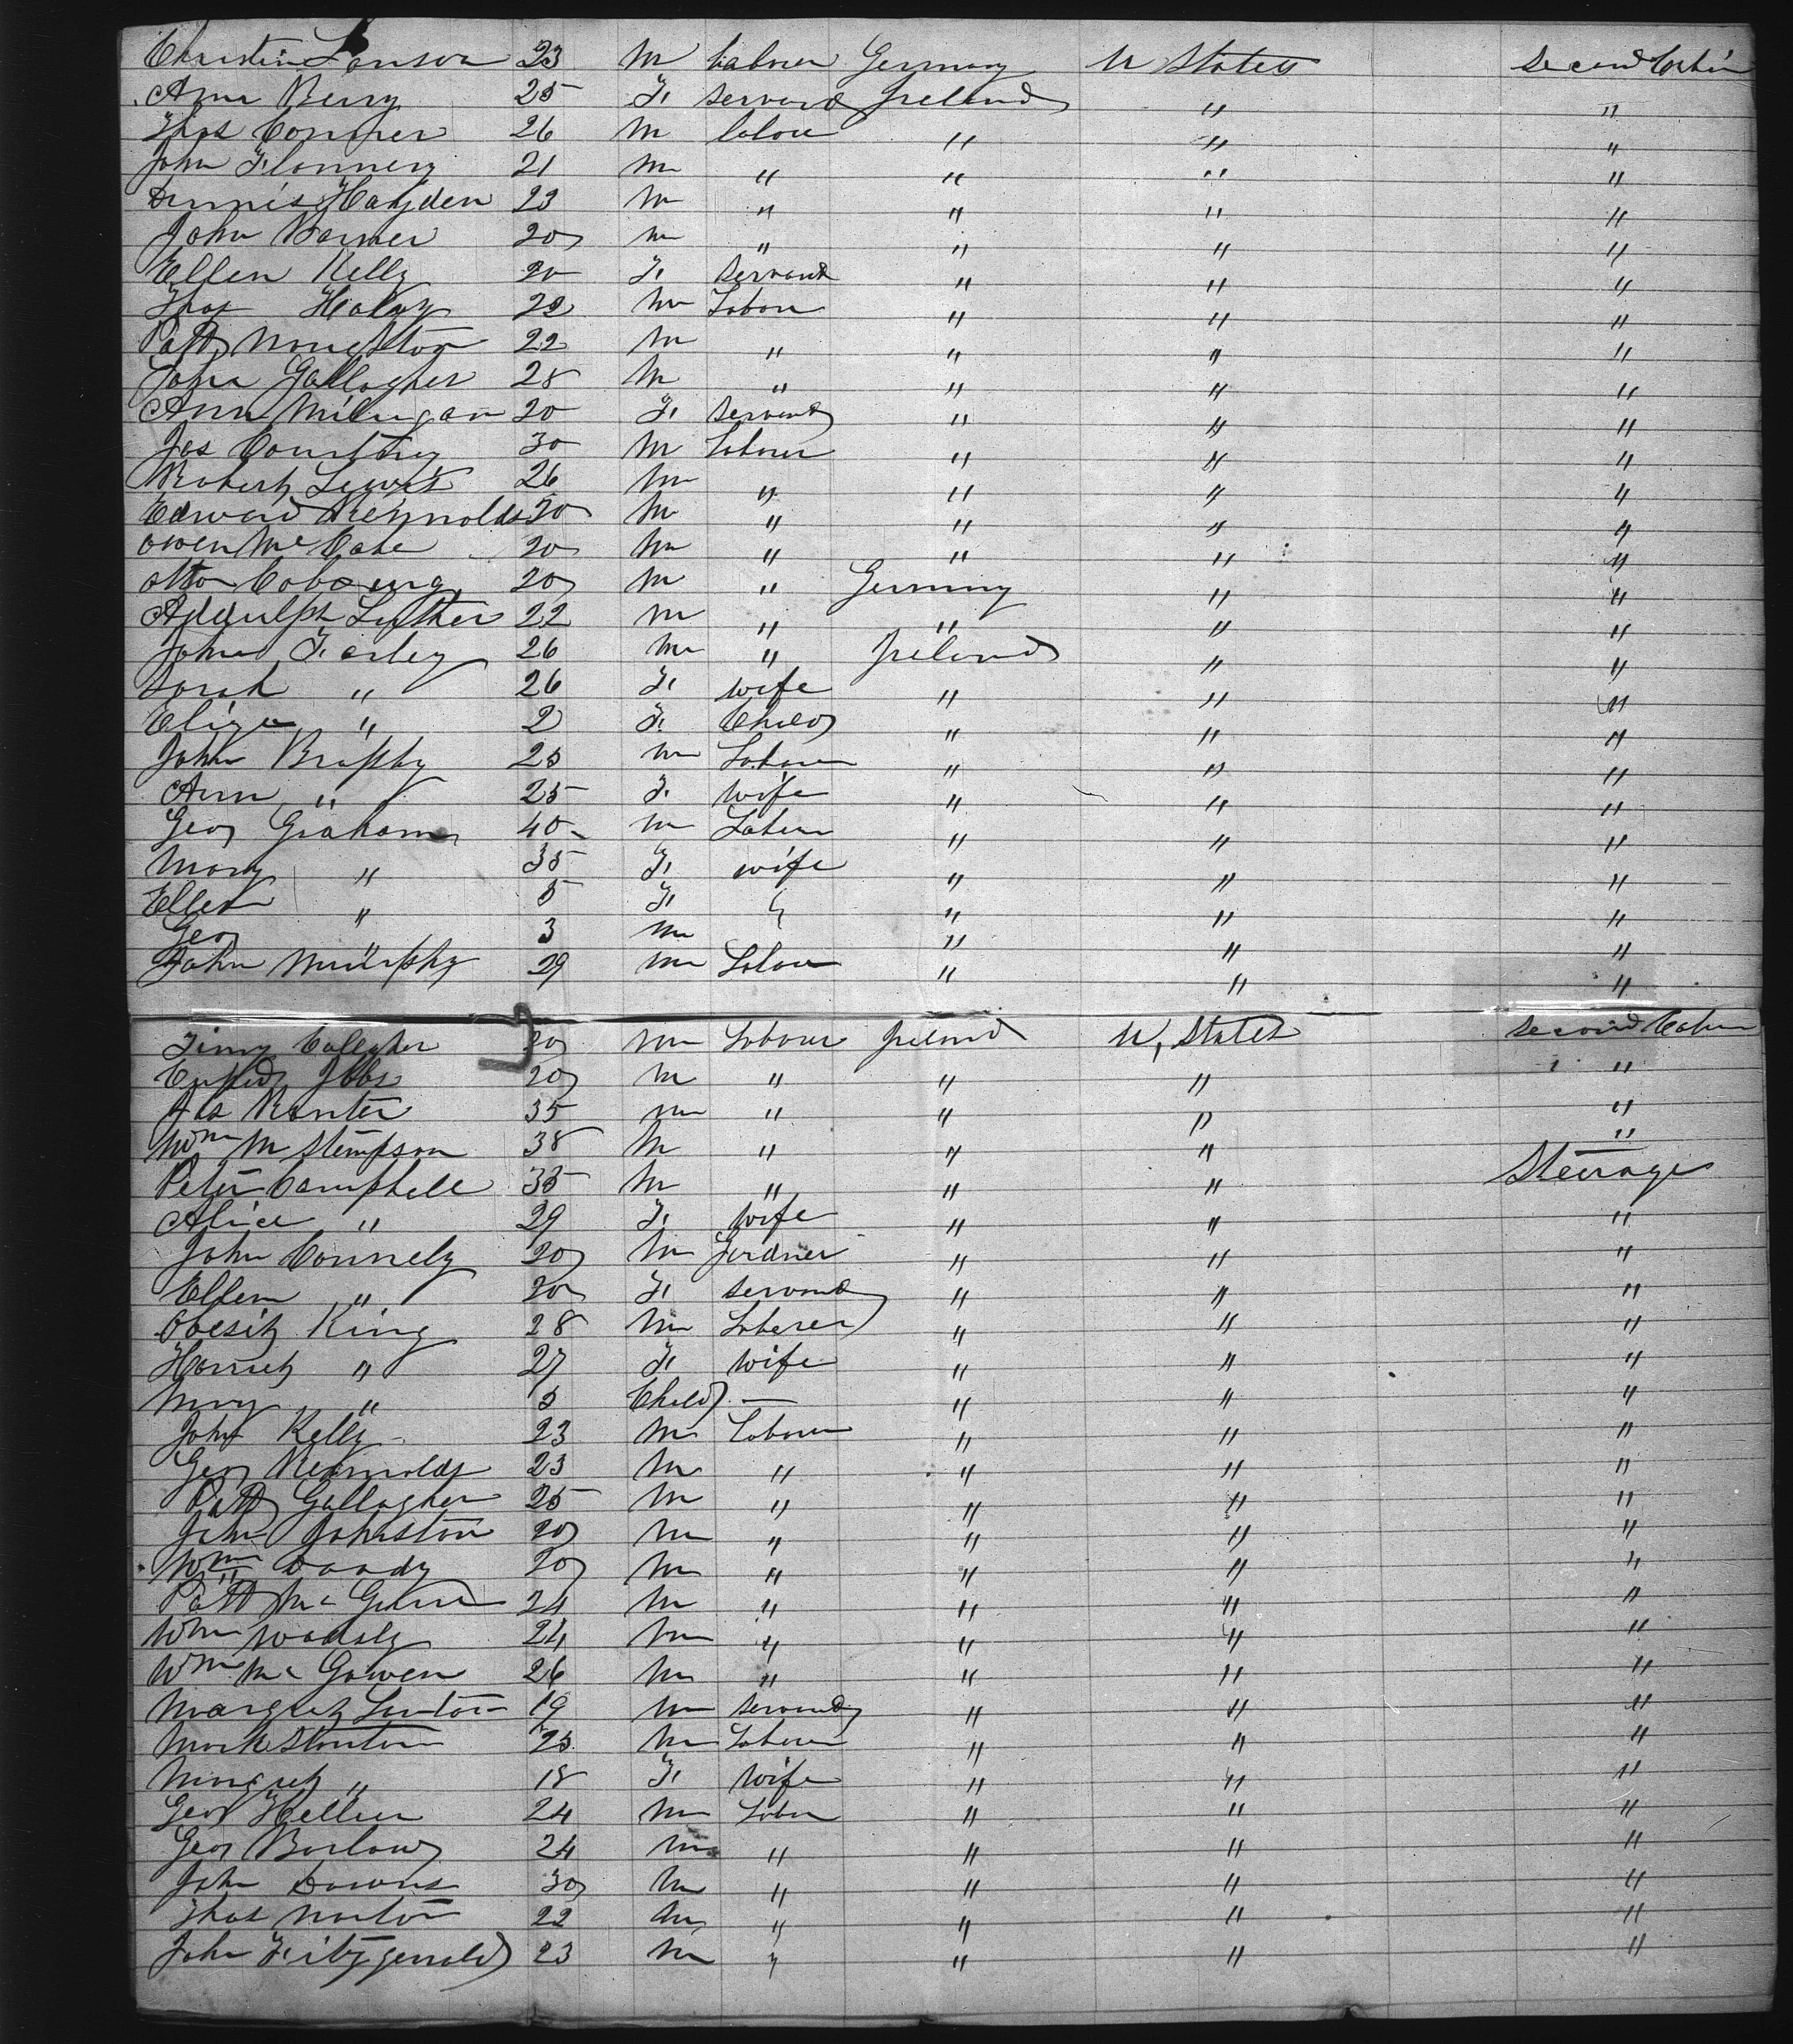 Christin Lanson 23 M Laborer Germany U States Second Cabin
Ann Berry 25 F. Servand Ireland " "
Thos Conner 26 M labou " " "
John Flannery 21 M " " " "
Dinnis Hayden 23 M " " " "
John Barner 20 M " " " "
Ellen Kelly 20 F. Servand " " "
Thos Haley 22 M Labou " " "
Patt Naughton 22 M " " " "
John Gallagher 28 M " " " "
Ann Milugan 20 F. Servand " " "
Jas Courtney 30 M Laborer " " "
Robert Lewis 26 M " " " "
Edward Reynolds 30 M " " " "
Owen Mc Cabe 20 M " " " "
Otto Cobourg 20 M " Germny " "
Addulph Luther 22 M " " " "
John Farley 26 M " Ireland " "
Sarah " 26 F. wife " " "
Eliza " 2 F. Child " " "
John Brophy 25 M Labou " " "
Ann " 25 F. wife " " "
Geo Graham 40 M Labou " " "
Mary " 35 F. wife " " "
Ellen " 5 F. " " " "
Geo " 3 M " " "
John Murphy 29 M Labou " " "
Timy Callagher 20 M Labour Ireland U, States Second Cabin
Jbbs 20 M " " " "
Jas Ranter 35 M " " " "
Wm M Stempson 38 M " " " "
Peter Campbell 35 M " " " Steerage
Alice " 29 F. wife " " "
John Connely 20 M Gerdner " " "
Ellen " 20 F. Servand " " "
King 28 M Laberer " " "
Harriet " 27 F. wife " " "
Mary " 5 Child — " " "
John Kelly 23 M Labour " " "
Geo Reynolds 23 M " " " "
Patt Gallagher 25 M " " " "
John Johnston 20 M " " " "
Wm Doody 20 M " " " "
Patt Mc Guire 24 M " " " "
Wm Woodsly 24 M " " " "
Wm Mc Gowen 26 M " " " "
Margret Lenton 19 M Servand " " "
Mark Stanton 25 M Labour " " "
Margret " 18 F. wife " " "
Geo Hellier 24 M Labor " " "
Geo Barlow 24 M " " " "
John Downs 30 M " " " "
Thos Norton 22 M " " " "
John Fitzgerrald 23 M " " " "